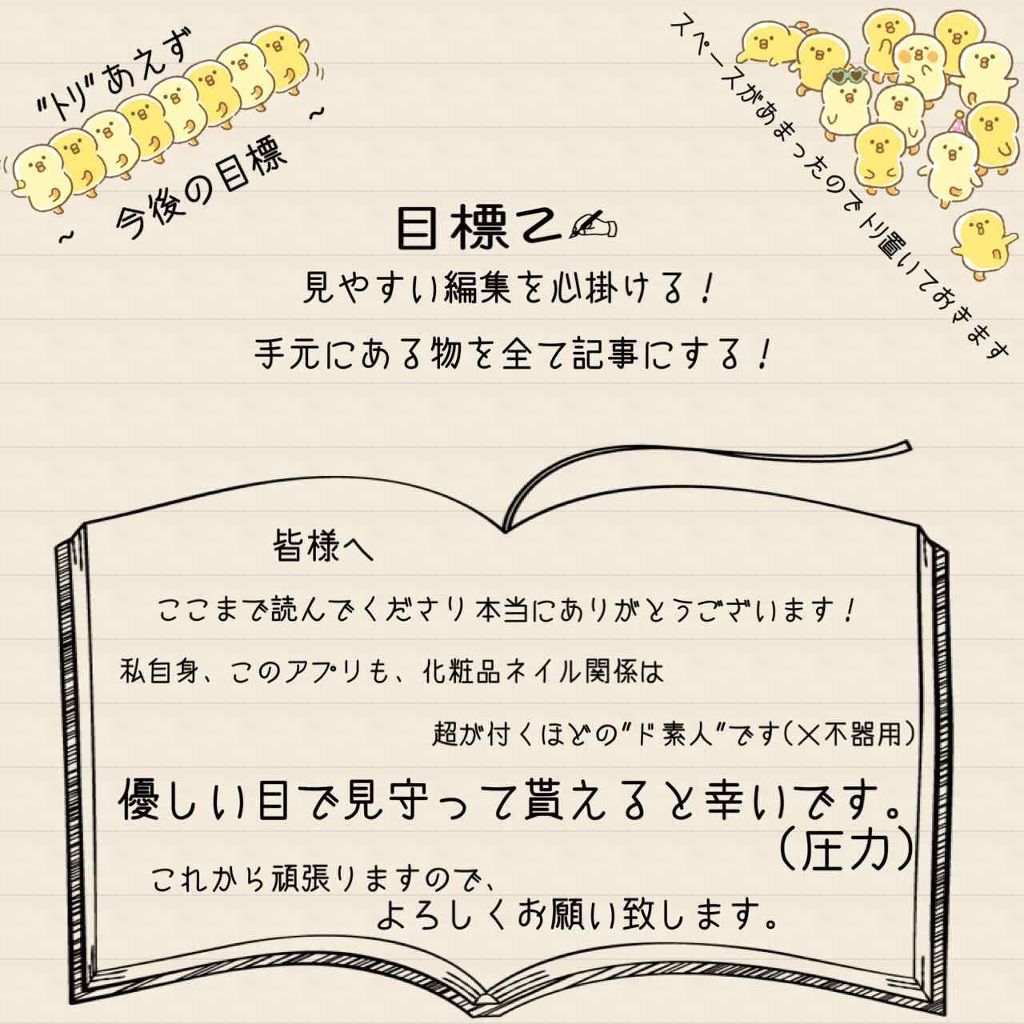 "トリ"あえず
~ 今後の目標 ~
スペースがあまったのでトリ置いておきます
目標乙✍
見やすい編集を心掛ける！
手元にある物を全て記事にする！
皆様へ
ここまで読んでくださり本当にありがとうございます！
私自身、このアプリも、化粧品ネイル関係は
超が付くほどの"ド素人"です(×不器用)
優しい目で見守って貰えると幸いです。
(圧力)
これから頑張りますので、
よろしくお願い致します。